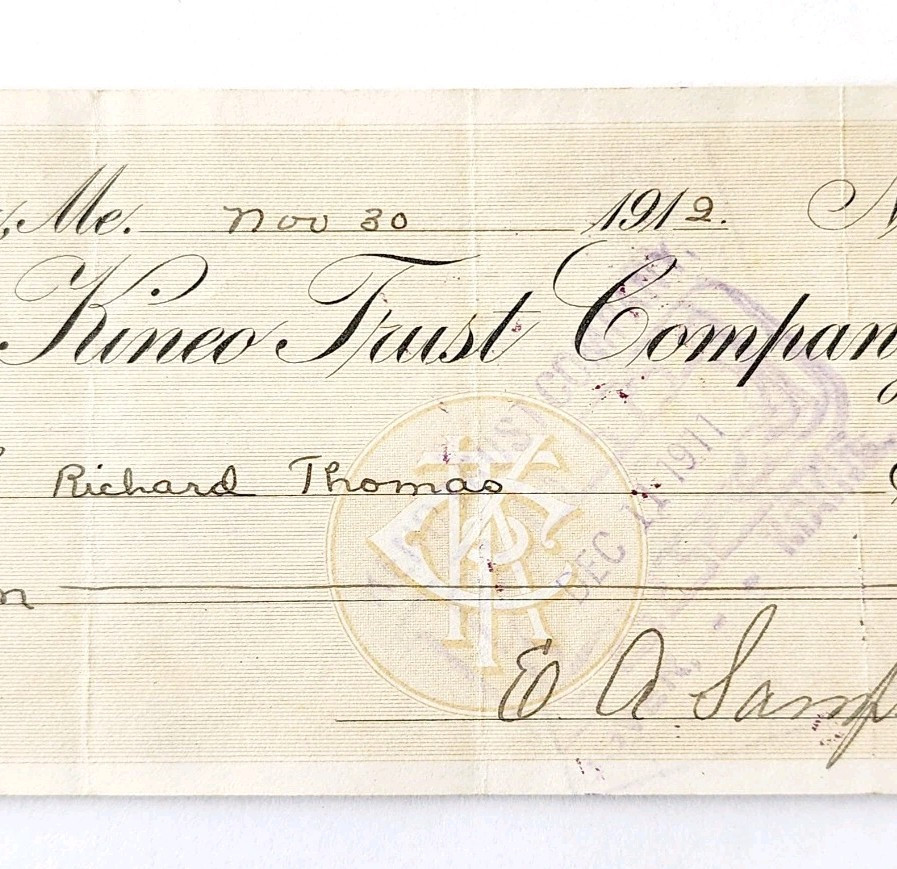 Me. Nov 30 1912. N
Kineo Trust Company
Richard Thomas
n
E A Samp
TRUST CO
DEC 11 1911